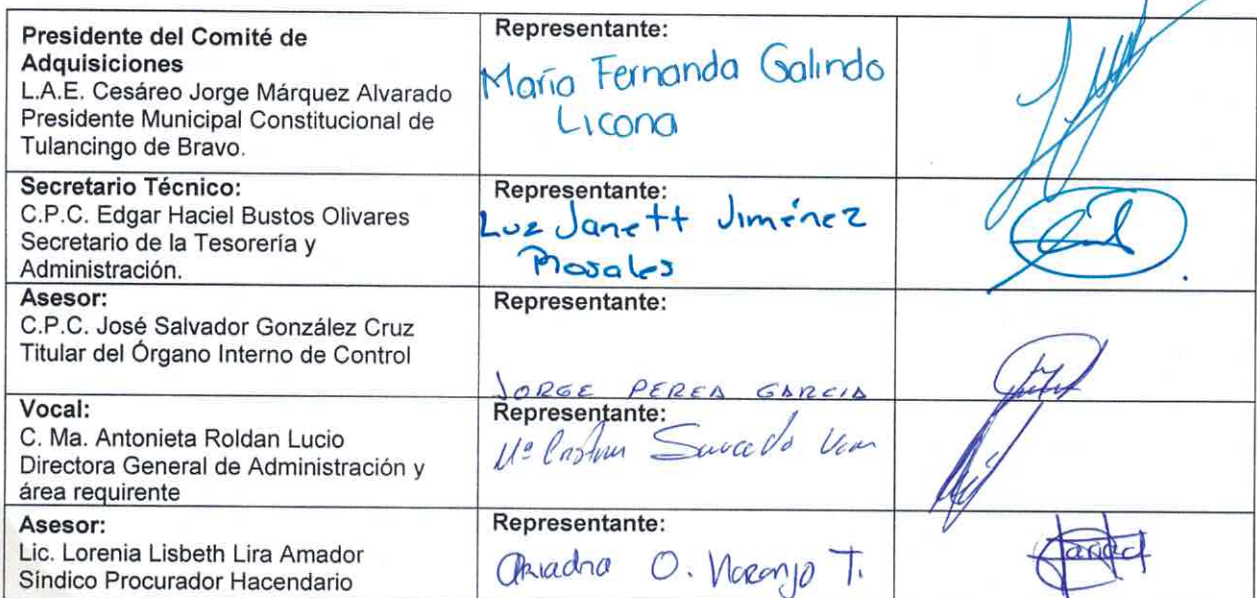 Presidente del Comité de
Adquisiciones
L.A.E. Cesáreo Jorge Márquez Alvarado
Presidente Municipal Constitucional de
Tulancingo de Bravo.
Representante:
María Fernanda Galindo
Licona
Secretario Técnico:
C.P.C. Edgar Haciel Bustos Olivares
Secretario de la Tesorería y
Administración.
Representante:
Luz Janett Jiménez
Rosales
Asesor:
C.P.C. José Salvador González Cruz
Titular del Órgano Interno de Control
Representante:
JORGE PEREA GARCIA
Vocal:
C. Ma. Antonieta Roldan Lucio
Directora General de Administración y
área requirente
Representante:
Mª
Asesor:
Lic. Lorenia Lisbeth Lira Amador
Síndico Procurador Hacendario
Representante:
Ariadna O. Naranjo T.